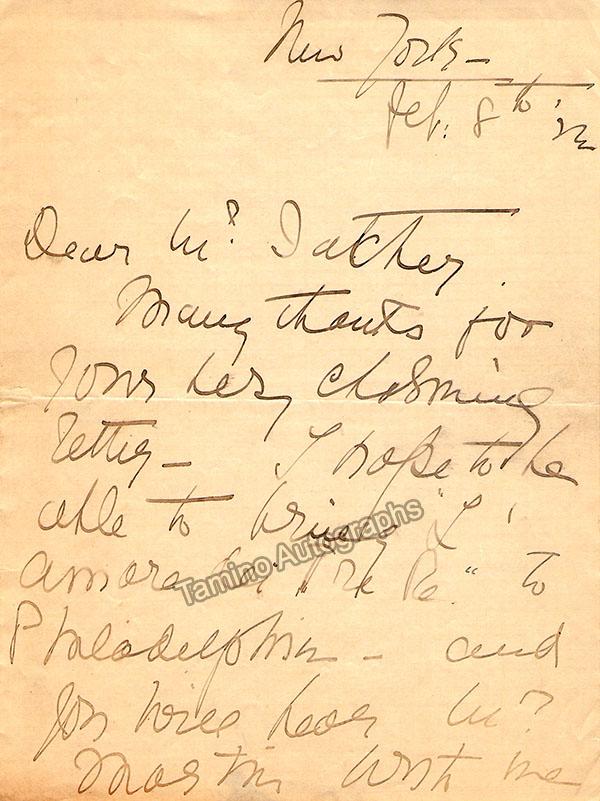 New York -
Feb. 8th '22
Dear Mr.
Many thanks for
your very charming
letter - I hope to be
able to bring "L'
amore dei Tre Re" to
Philadelphia - and
you will hear Mr.
Martin with me
Tamino Autographs